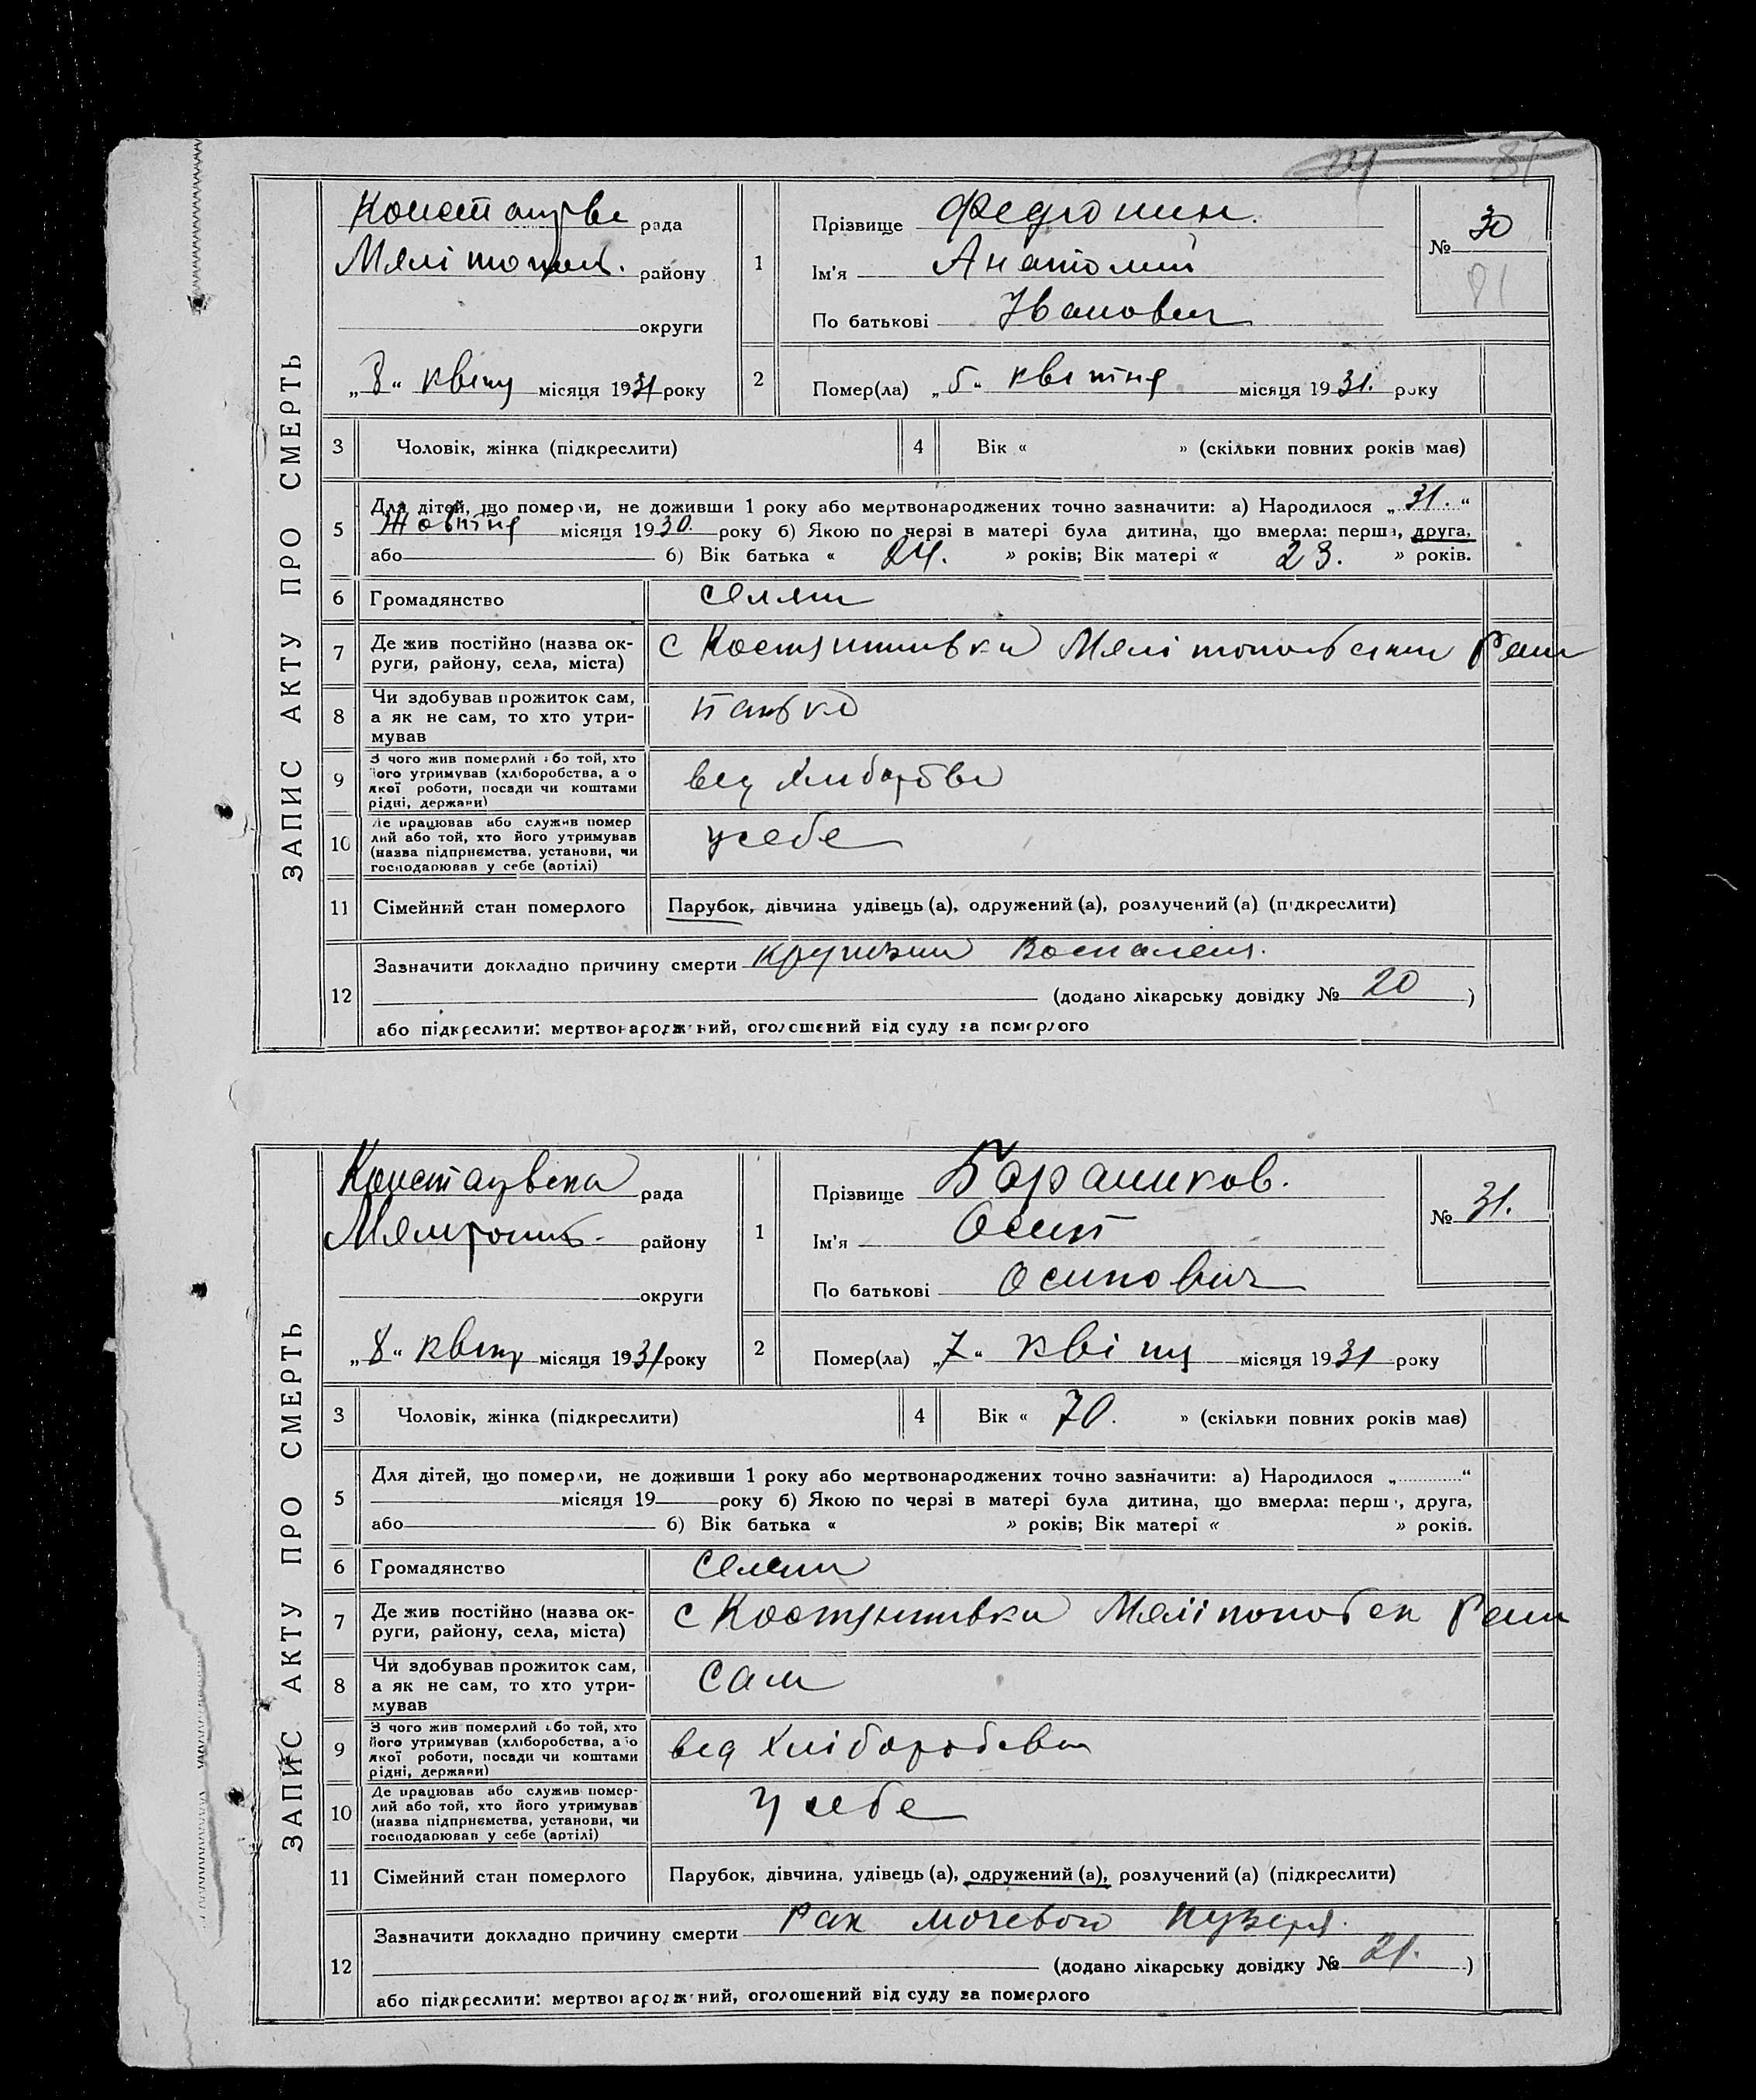 81
ЗАПИС АКТУ ПРО СМЕРТЬ
рада
району
округи
„8“ місяця 1931 року
1
Прізвище
Ім'я Анатолий
По батькові Іванович
№ 30
81
2
Помер(ла) „5“ квітня місяця 1931. року
3 Чоловік, жінка (підкреслити)
4 Вік « » (скільки повних років має)
5 Для дітей, що померли, не доживши 1 року або мертвонароджених точно зазначити: а) Народилося „31.“
Жовтня місяця 1930. року б) Якою по черзі в матері була дитина, що вмерла: перша, друга,
або б) Вік батька « 24. » років; Вік матері « 23. » років.
6 Громадянство селян
7 Де жив постійно (назва ок-
руги, району, села, міста)
с
8 Чи здобував прожиток сам,
а як не сам, то хто утри-
мував
батько
9 З чого жив померлий або той, хто
його утримував (хліборобства, або
якої роботи, посади чи коштами
рідні, держави)
від
10 Де працював або служив помер
лий або той, хто його утримував
(назва підприємства, установи, чи
господарював у себе (артілі)
у себе
11 Сімейний стан померлого Парубок, дівчина удівець (а), одружений (а), розлучений (а) (підкреслити)
12 Зазначити докладно причину смерти
(додано лікарську довідку № 20 )
або підкреслити: мертвонароджений, оголошений від суду за померлого
ЗАПИС АКТУ ПРО СМЕРТЬ
рада
району
округи
„8“ місяця 1931 року
1
Прізвище Баранников.
Ім'я Осип
По батькові Осипович
№ 31.
2
Помер(ла) „7“ місяця 1931 року
3 Чоловік, жінка (підкреслити)
4 Вік « 70. » (скільки повних років має)
5 Для дітей, що померли, не доживши 1 року або мертвонароджених точно зазначити: а) Народилося „ “
місяця 19 року б) Якою по черзі в матері була дитина, що вмерла: перша, друга,
або б) Вік батька « » років; Вік матері « » років.
6 Громадянство селян
7 Де жив постійно (назва ок-
руги, району, села, міста)
с
8 Чи здобував прожиток сам,
а як не сам, то хто утри-
мував
сам
9 З чого жив померлий або той, хто
його утримував (хліборобства, або
якої роботи, посади чи коштами
рідні, держави)
від хліборобства
10 Де працював або служив помер-
лий або той, хто його утримував
(назва підприємства, установи, чи
господарював у себе (артілі)
у себе
11 Сімейний стан померлого Парубок, дівчина, удівець (а), одружений (а), розлучений (а) (підкреслити)
12 Зазначити докладно причину смерти Рак мочевого пузиря.
(додано лікарську довідку № 21. )
або підкреслити: мертвонароджений, оголошений від суду за померлого